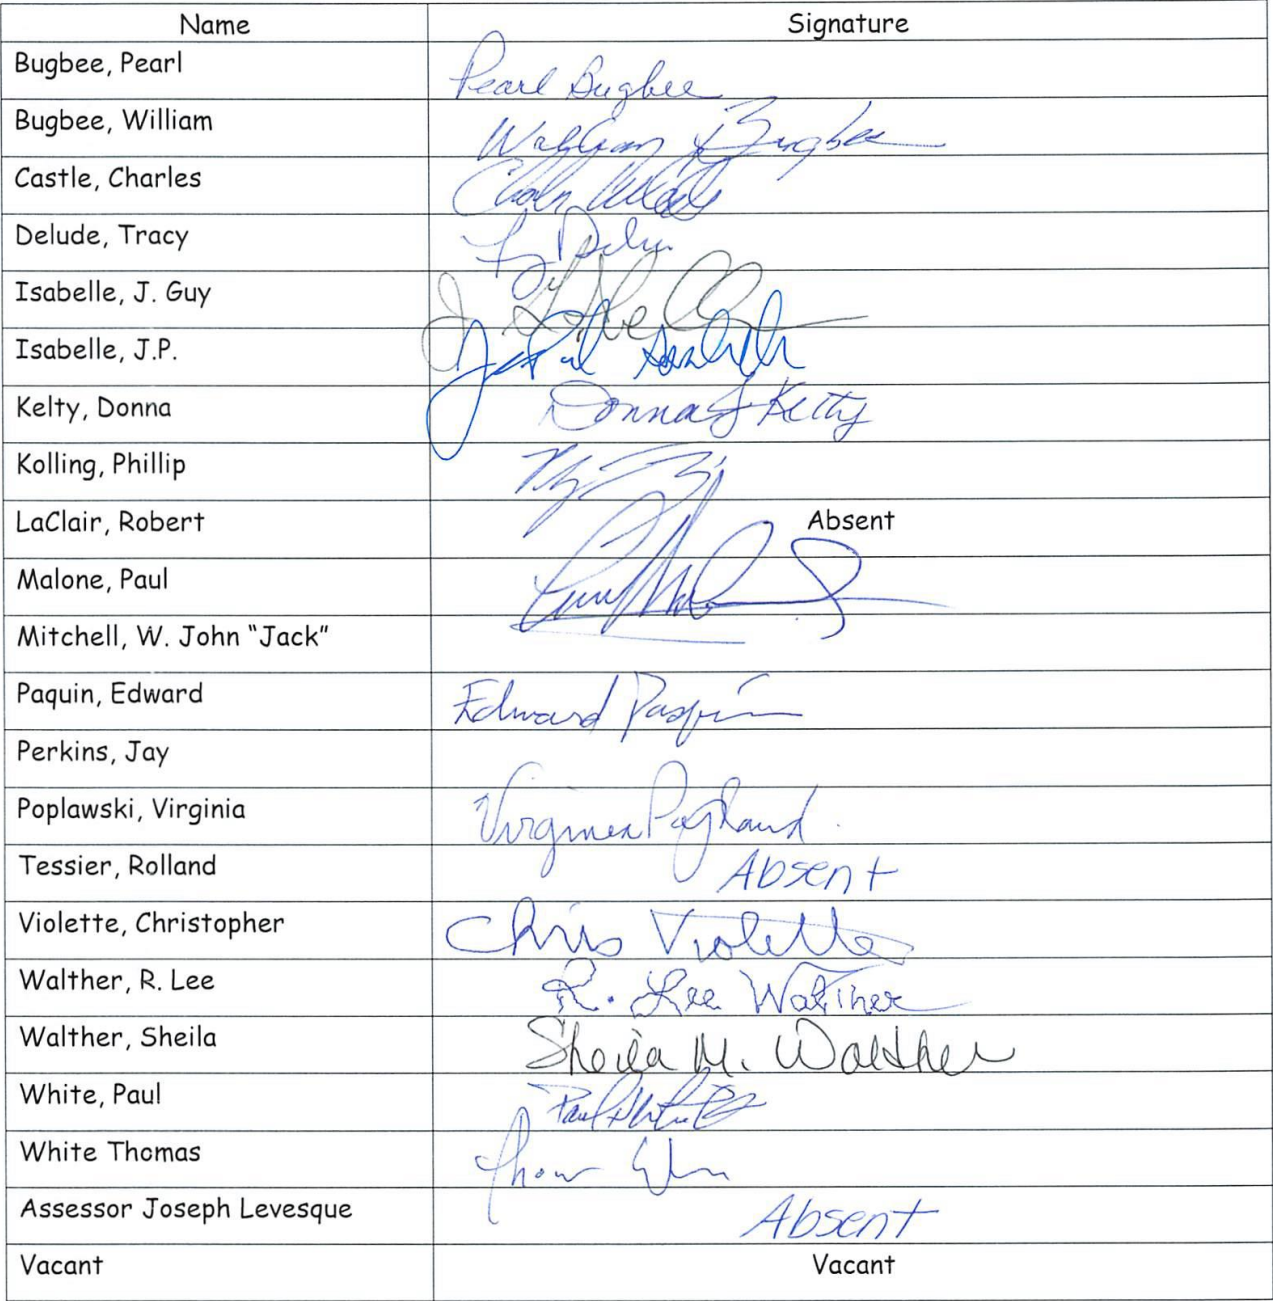 Name Signature
Bugbee, Pearl Pearl Bugbee
Bugbee, William William Bugbee
Castle, Charles
Delude, Tracy
Isabelle, J. Guy
Isabelle, J.P.
Kelty, Donna Donna J Kelty
Kolling, Phillip
LaClair, Robert Absent
Malone, Paul
Mitchell, W. John “Jack”
Paquin, Edward Edward Paquin
Perkins, Jay
Poplawski, Virginia Virginia
Tessier, Rolland Absent
Violette, Christopher Chris Violette
Walther, R. Lee R. Lee Walther
Walther, Sheila Sheila M. Walther
White, Paul Paul White
White Thomas
Assessor Joseph Levesque Absent
Vacant Vacant